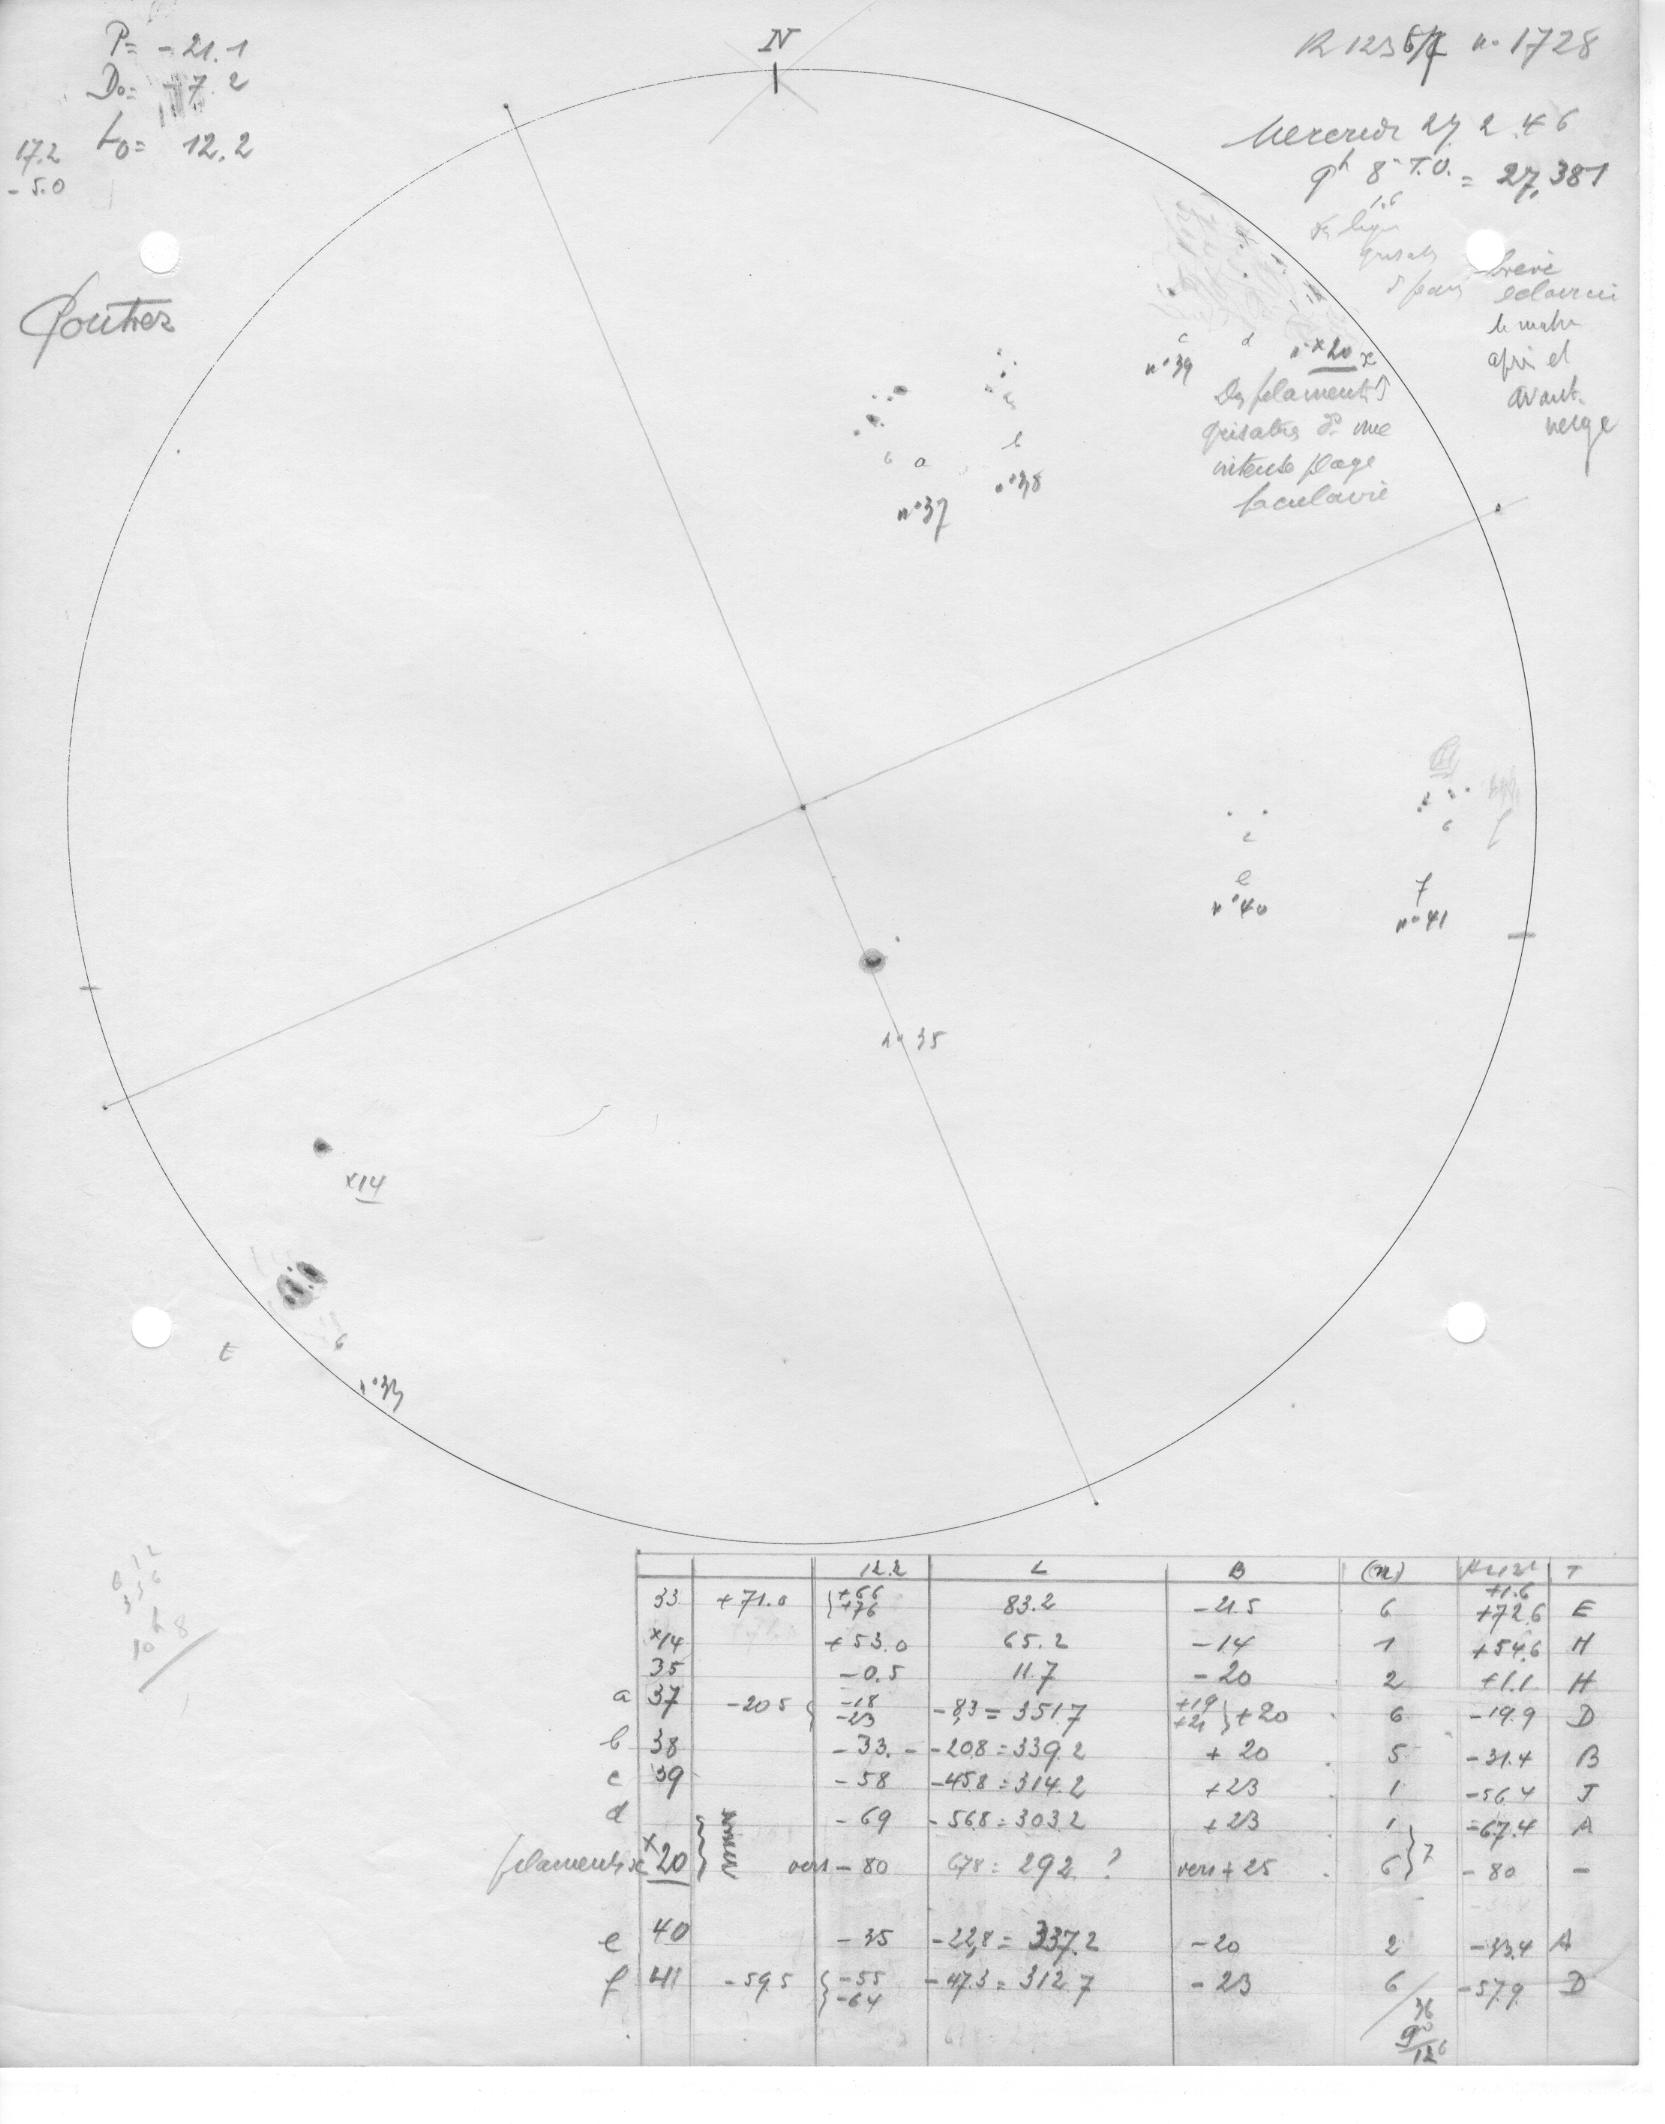 P= -21.1
D₀= -7.2
L₀= 12.2
17.2
-5.0
N
n° 1728
Mercredi 27 2 46
9h 8m T.U. = 27,381
1.6
brève
eclaircie
le matin
après et
avant
neige
c
d
n°39
x20 x
Des filaments
grisatres ds une
intense plage
faculaire
6
a
b
n°37
n°38
2
6
f
e
f
n°40
n°41
n°35
x14
t
6
n°33
10h 8
12.2
L
B
(n)
T
+1.6
33 +71.0 {+66 +76 83.2 -21.5 6 +72.6 E
x14 +53.0 65.2 -14 1 +54.6 H
35 -0.5 11.7 -20 2 +1.1 H
a 37 -20.5 {-18 -23 -8,3 = 351.7 +19 +21 }+20 6 -19.9 D
b 38 -33. -20.8 = 339.2 +20 5 -31.4 B
c 39 -58 -45.8 = 314.2 +23 1 -56.4 J
d -69 -56.8 = 303.2 +23 1 -67.4 A
filaments x x20 vers -80 67.8 = 292. ? vers +25 6 }7 -80 -
e 40 -35 -22,8 = 337.2 -20 2 -33.4 A
f 41 -59.5 {-55 -64 -47.3 = 312.7 -23 6 -57.9 D
36
90
126